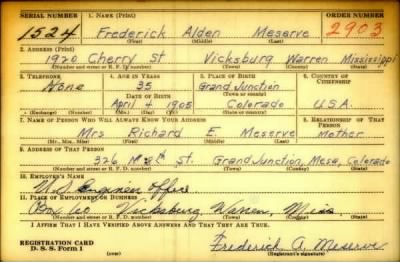 SERIAL NUMBER 1. NAME (Print) ORDER NUMBER
1524 Frederick Alden Meserve 2903
(First) (Middle) (Last)
2. ADDRESS (Print)
1920 Cherry St Vicksburg Warren Mississippi
(Number and street or R. F. D. number) (Town) (County) (State)
3. TELEPHONE 4. AGE IN YEARS 5. PLACE OF BIRTH 6. COUNTRY OF CITIZENSHIP
None 35 Grand Junction
DATE OF BIRTH (Town or county)
April 4 1905 Colorado U.S.A.
(Exchange) (Number) (Mo.) (Day) (Yr.) (State or country)
7. NAME OF PERSON WHO WILL ALWAYS KNOW YOUR ADDRESS 8. RELATIONSHIP OF THAT PERSON
Mrs Richard E. Meserve Mother
(Mr., Mrs., Miss) (First) (Middle) (Last)
9. ADDRESS OF THAT PERSON
326 N. 8th St. Grand Junction, Mesa, Colorado
(Number and street or R. F. D. number) (Town) (County) (State)
10. EMPLOYER'S NAME
U.S. Engineer Office
11. PLACE OF EMPLOYMENT OR BUSINESS
Box 60 Vicksburg, Warren, Miss
(Number and street or R. F. D. number) (Town) (County) (State)
I AFFIRM THAT I HAVE VERIFIED ABOVE ANSWERS AND THAT THEY ARE TRUE.
REGISTRATION CARD
D. S. S. Form 1 (over) Frederick A. Meserve
(Registrant's signature)